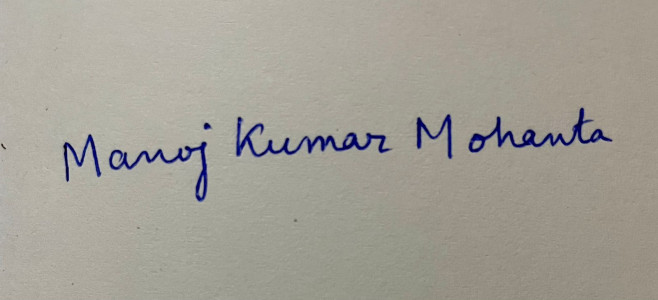 Manoj Kumar Mohanta